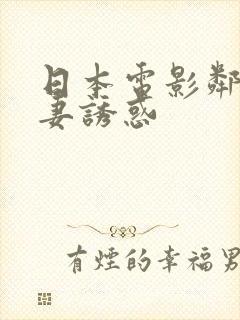 日本電影鄰
妻誘惑
有煙的幸福男